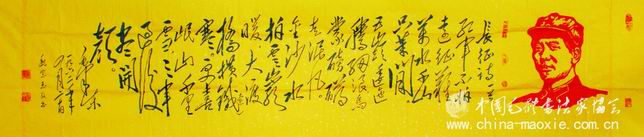 长征诗一首
红军不怕
远征难
万水千山
只等闲
五岭逶迤
腾细浪乌
蒙磅礴
走泥丸
金沙水
拍云崖
暖大渡
桥横铁索
寒更喜
岷山千里
雪三军
过后
尽开
颜
毛泽东
一九六二年
四月二十日
中国毛体书法家协会
www.china-maoxie.com.cn